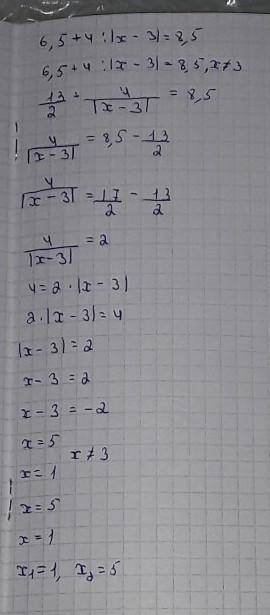 6,5+4:|x-3|=8,5
6,5+4:|x-3|=8,5, x≠3
13/2 + 4/|x-3| = 8,5
4/|x-3| = 8,5 - 13/2
4/|x-3| = 17/2 - 13/2
4/|x-3| = 2
4=2·|x-3|
2·|x-3|=4
|x-3|=2
x-3=2
x-3=-2
x=5
x≠3
x=1
x=5
x=1
x₁=1, x₂=5